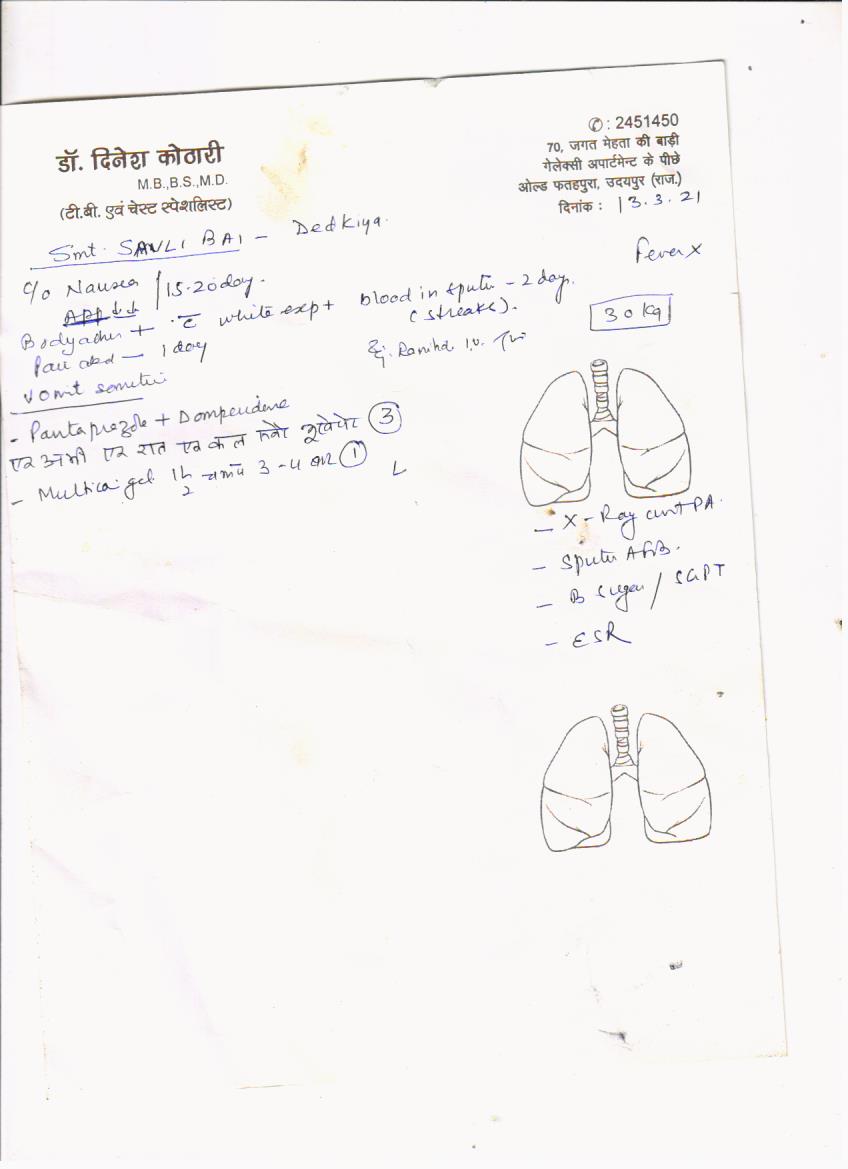 ✆ : 2451450
डॉ. दिनेश कोठारी
70, जगत मेहता की बाड़ी
M.B.,B.S.,M.D.
गेलेक्सी अपार्टमेन्ट के पीछे
(टी.बी. एवं चेस्ट स्पेशलिस्ट)
ओल्ड फतहपुरा, उदयपुर (राज.)
दिनांक : 13.3.21
Smt. SAVLI BAI - Dedkiya.
Fever X
C/o Nausea / 15-20 day.
APP ↓↓
blood in sputu - 2 day.
(streaks).
30 Kg
Bodyaches + c̄ white exp +
Pain abd - 1 day
Inj. i.v.
Vomit
- Pantaprazole + Domperidone
एक अभी एक रात एक कल 3
- Multica gel 1/2 3-4 बार 1
- X-Ray chest PA.
- Sputu AFB.
- B Sugar / SGPT
- ESR